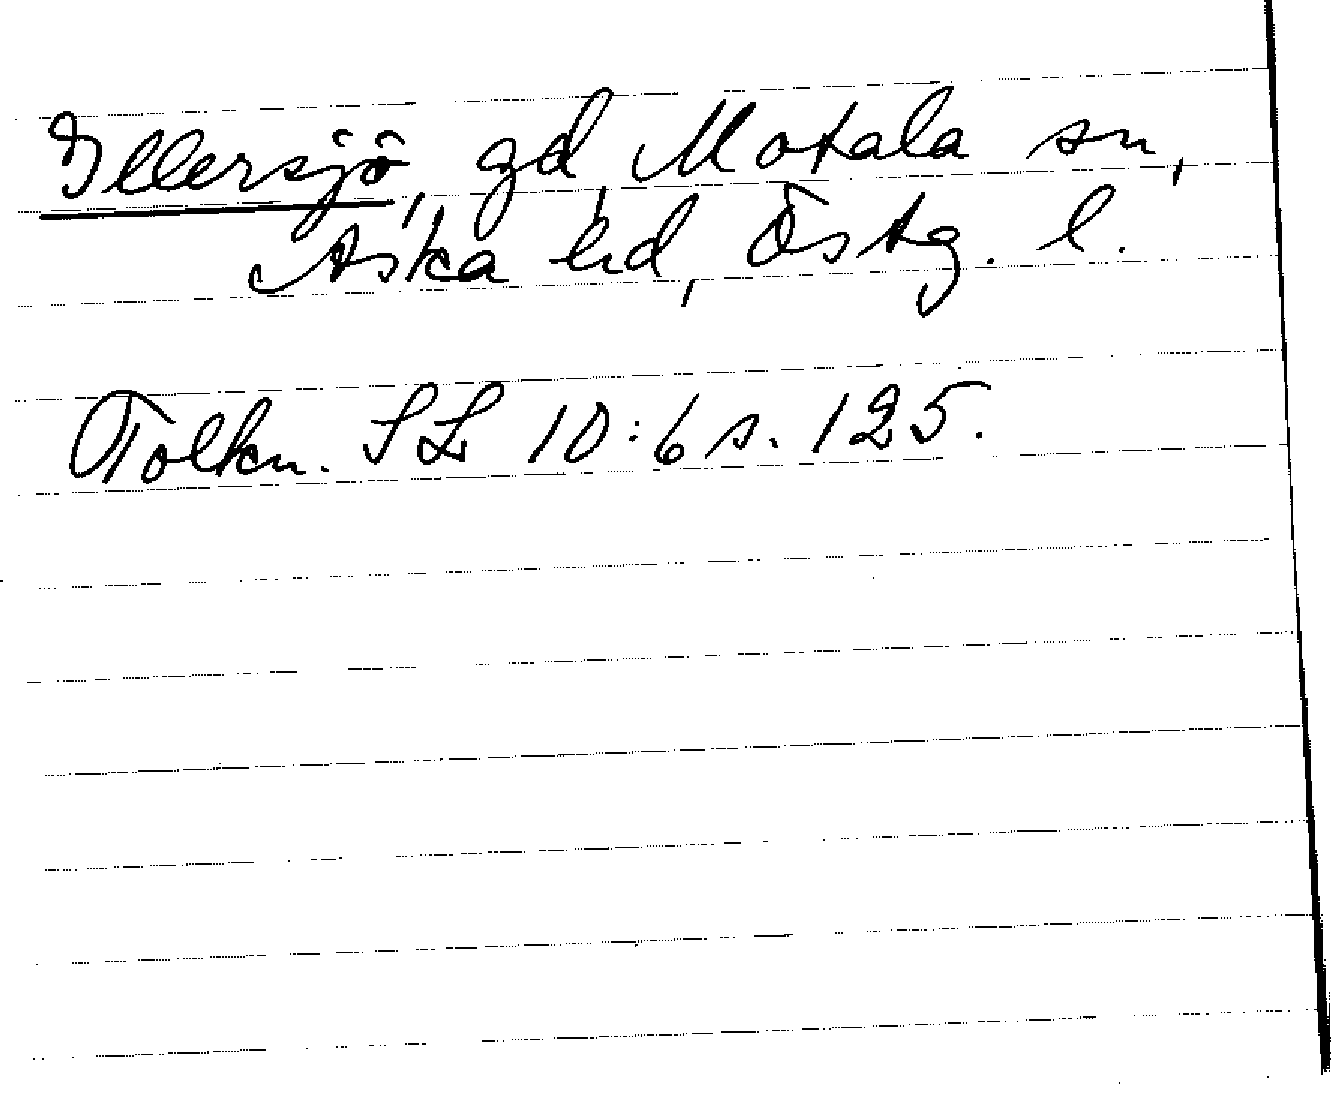 Illersjö, gd, Motala sn,
Aska hd, Östg. l.
Tolkn. SL 10:6 s. 125.